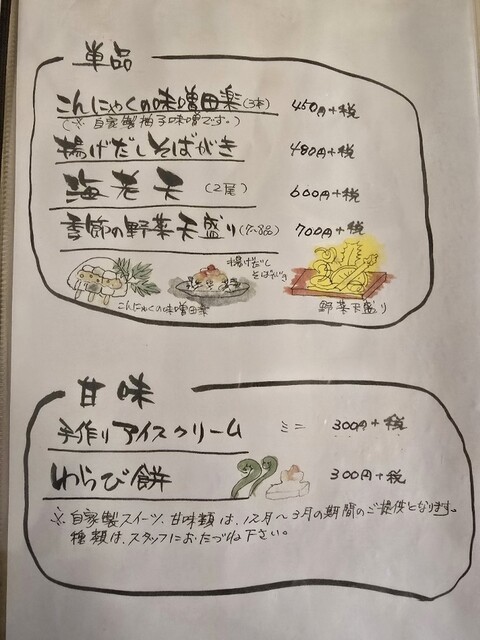 単品
こんにゃくの味噌田楽(3本) 450円+税
(※ 自家製柚子味噌です。)
揚げだしそばがき 480円+税
海老天 (2尾) 600円+税
季節の野菜天盛り(7~8品) 700円+税
揚げだし
そばがき
こんにゃくの味噌田楽
野菜天盛り
甘味
手作りアイスクリーム ミニ 300円+税
わらび餅 300円+税
※ 自家製スイーツ、甘味類は、12月~3月の期間のご提供となります。
種類は、スタッフにおたづね下さい。